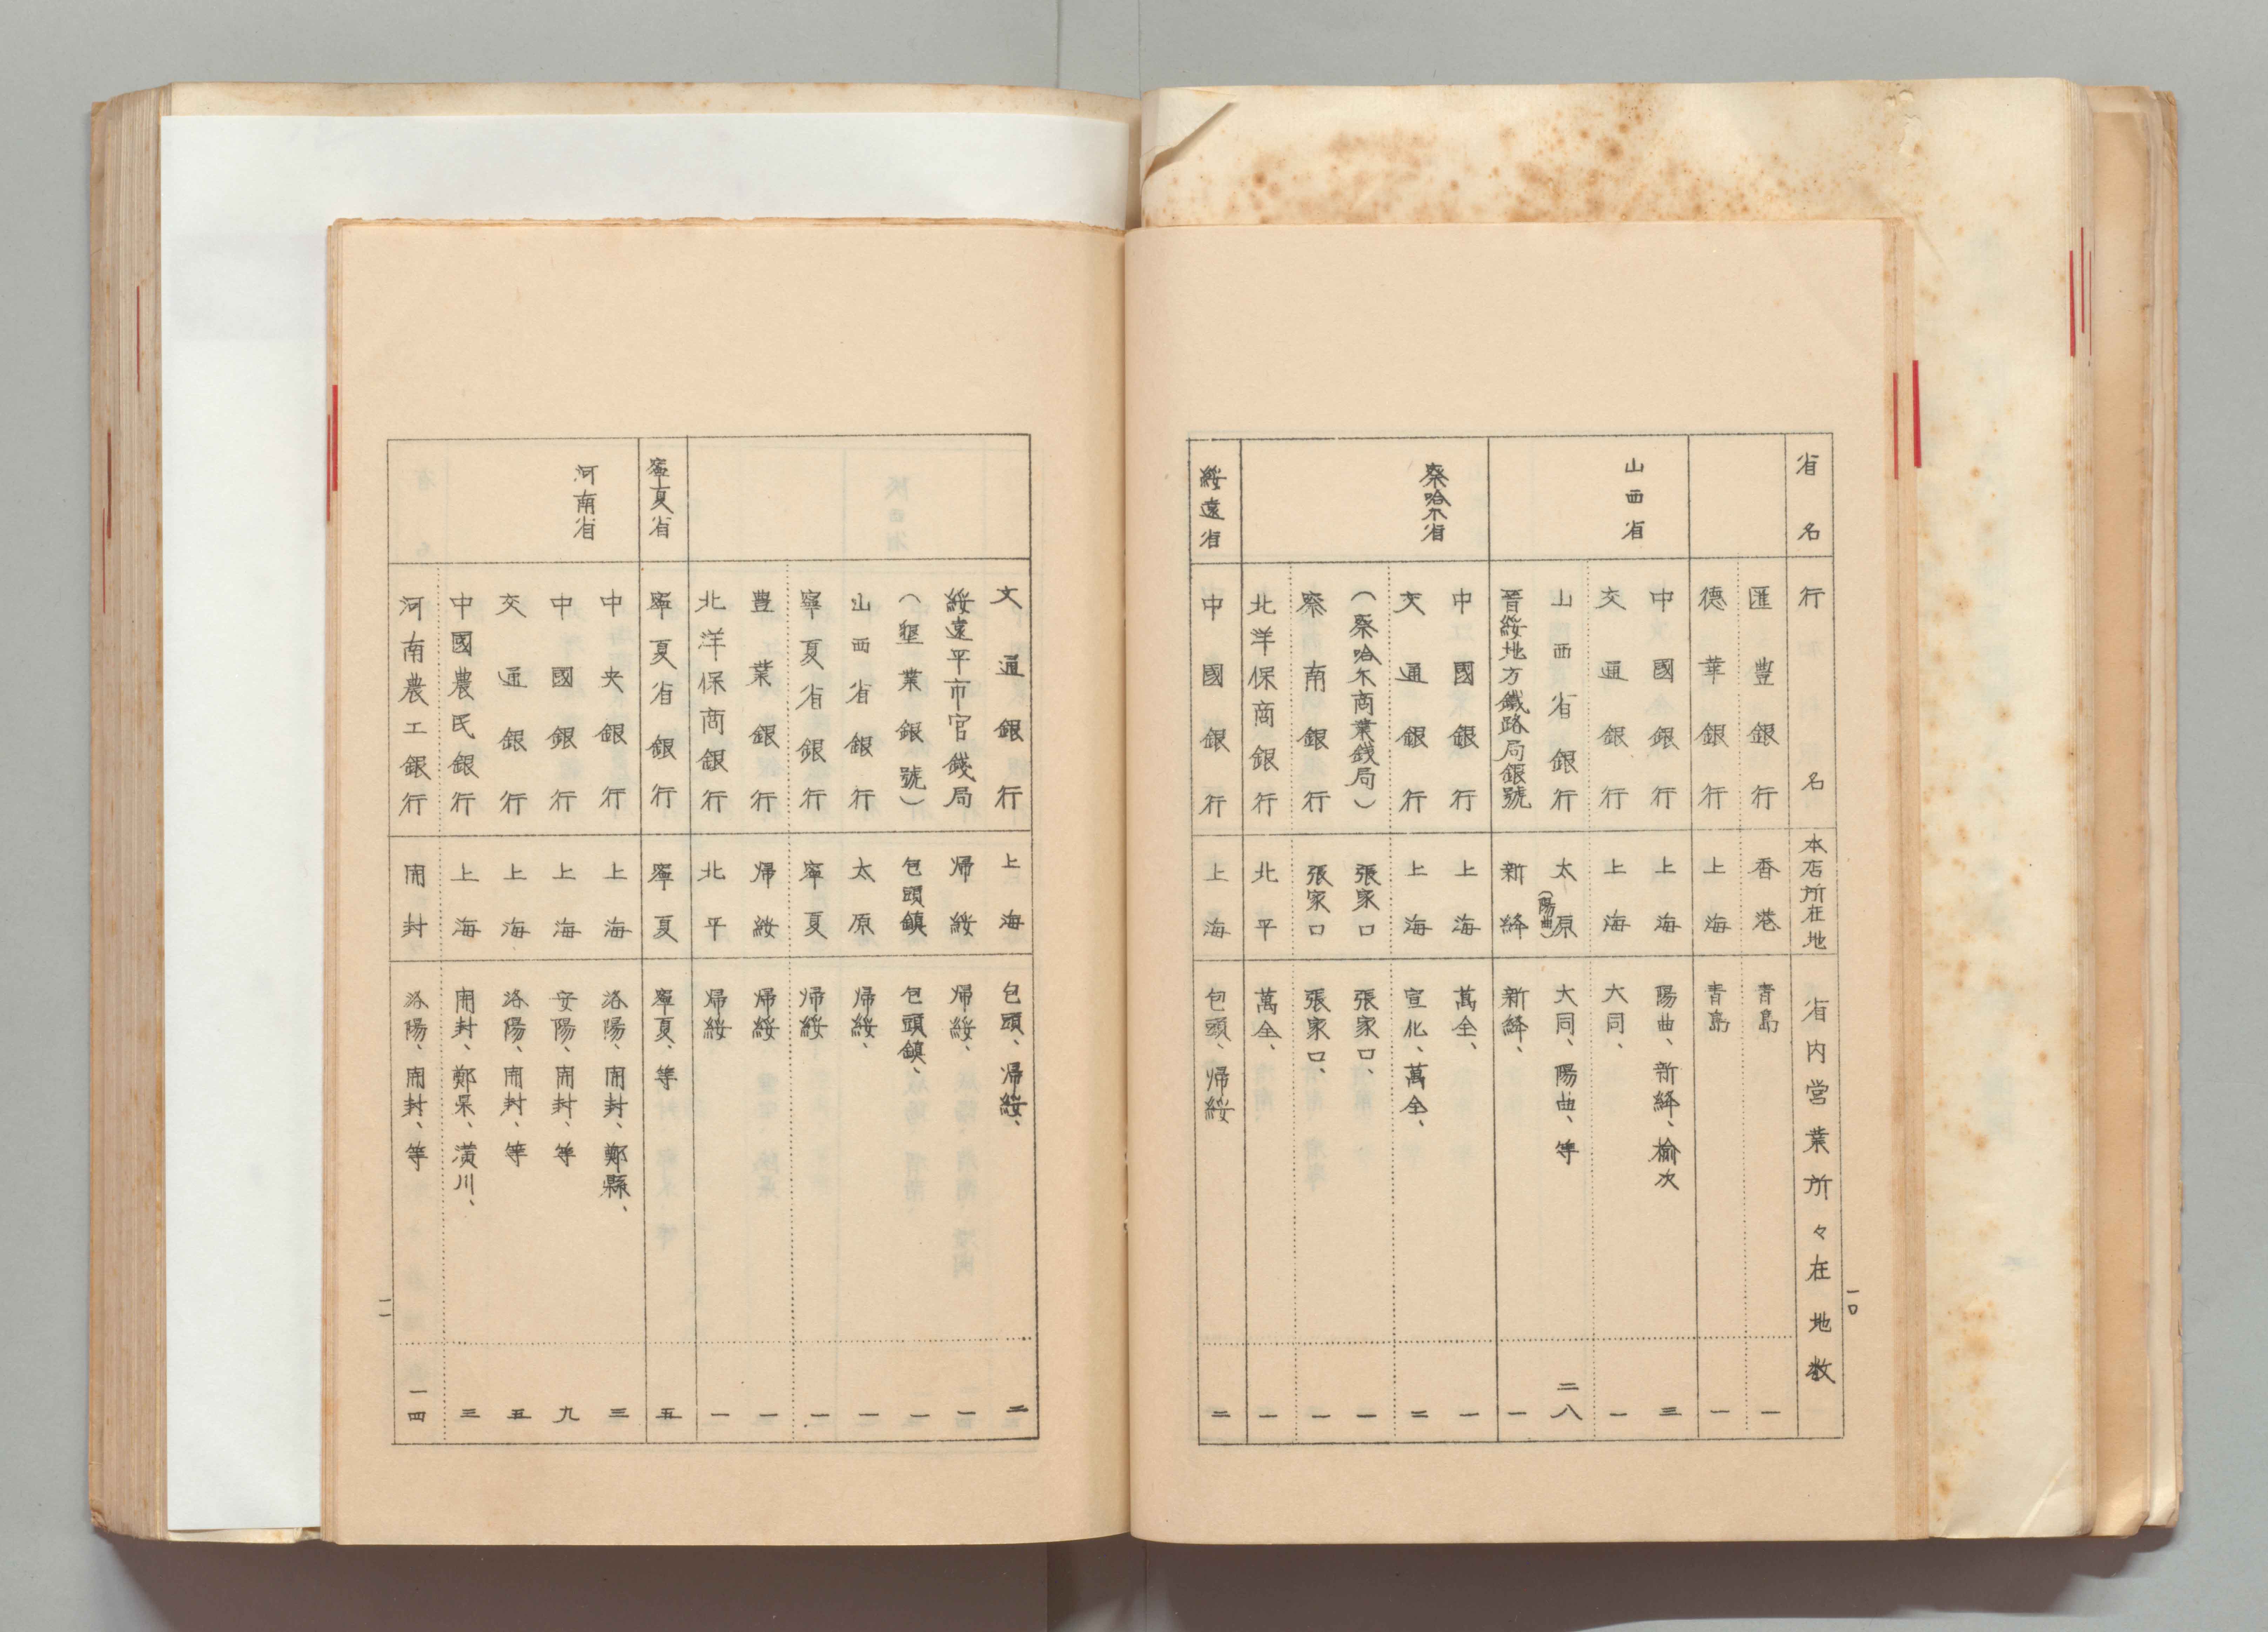 省名 行名 本店所在地 省内営業所々在地数
匯豊銀行 香港 青島 一
德華銀行 上海 青島 一
山西省 中國銀行 上海 陽曲、新絳、榆次 三
交通銀行 上海 大同、 一
山西省銀行 太原(陽曲) 大同、陽曲、等 二八
晉綏地方鐵路局銀號 新絳 新絳、 一
察哈尔省 中國銀行 上海 萬全、 一
交通銀行 上海 宣化、萬全、 二
(察哈尔商業錢局) 張家口 張家口、 一
察南銀行 張家口 張家口、 一
北洋保商銀行 北平 萬全、 一
綏遠省 中國銀行 上海 包頭、帰綏 二
一〇
交通銀行 上海 包頭、帰綏、 二
綏遠平市官錢局 帰綏 帰綏、 一
(墾業銀號) 包頭鎮 包頭鎮、 一
山西省銀行 太原 帰綏、 一
寧夏省銀行 寧夏 帰綏 一
豊業銀行 帰綏 帰綏 一
北洋保商銀行 北平 帰綏 一
寧夏省 寧夏省銀行 寧夏 寧夏、等 五
河南省 中央銀行 上海 洛陽、開封、鄭縣、 三
中國銀行 上海 安陽、開封、等 九
交通銀行 上海 洛陽、開封、等 五
中國農民銀行 上海 開封、鄭県、潢川、 三
河南農工銀行 開封 洛陽、開封、等 一四
一一